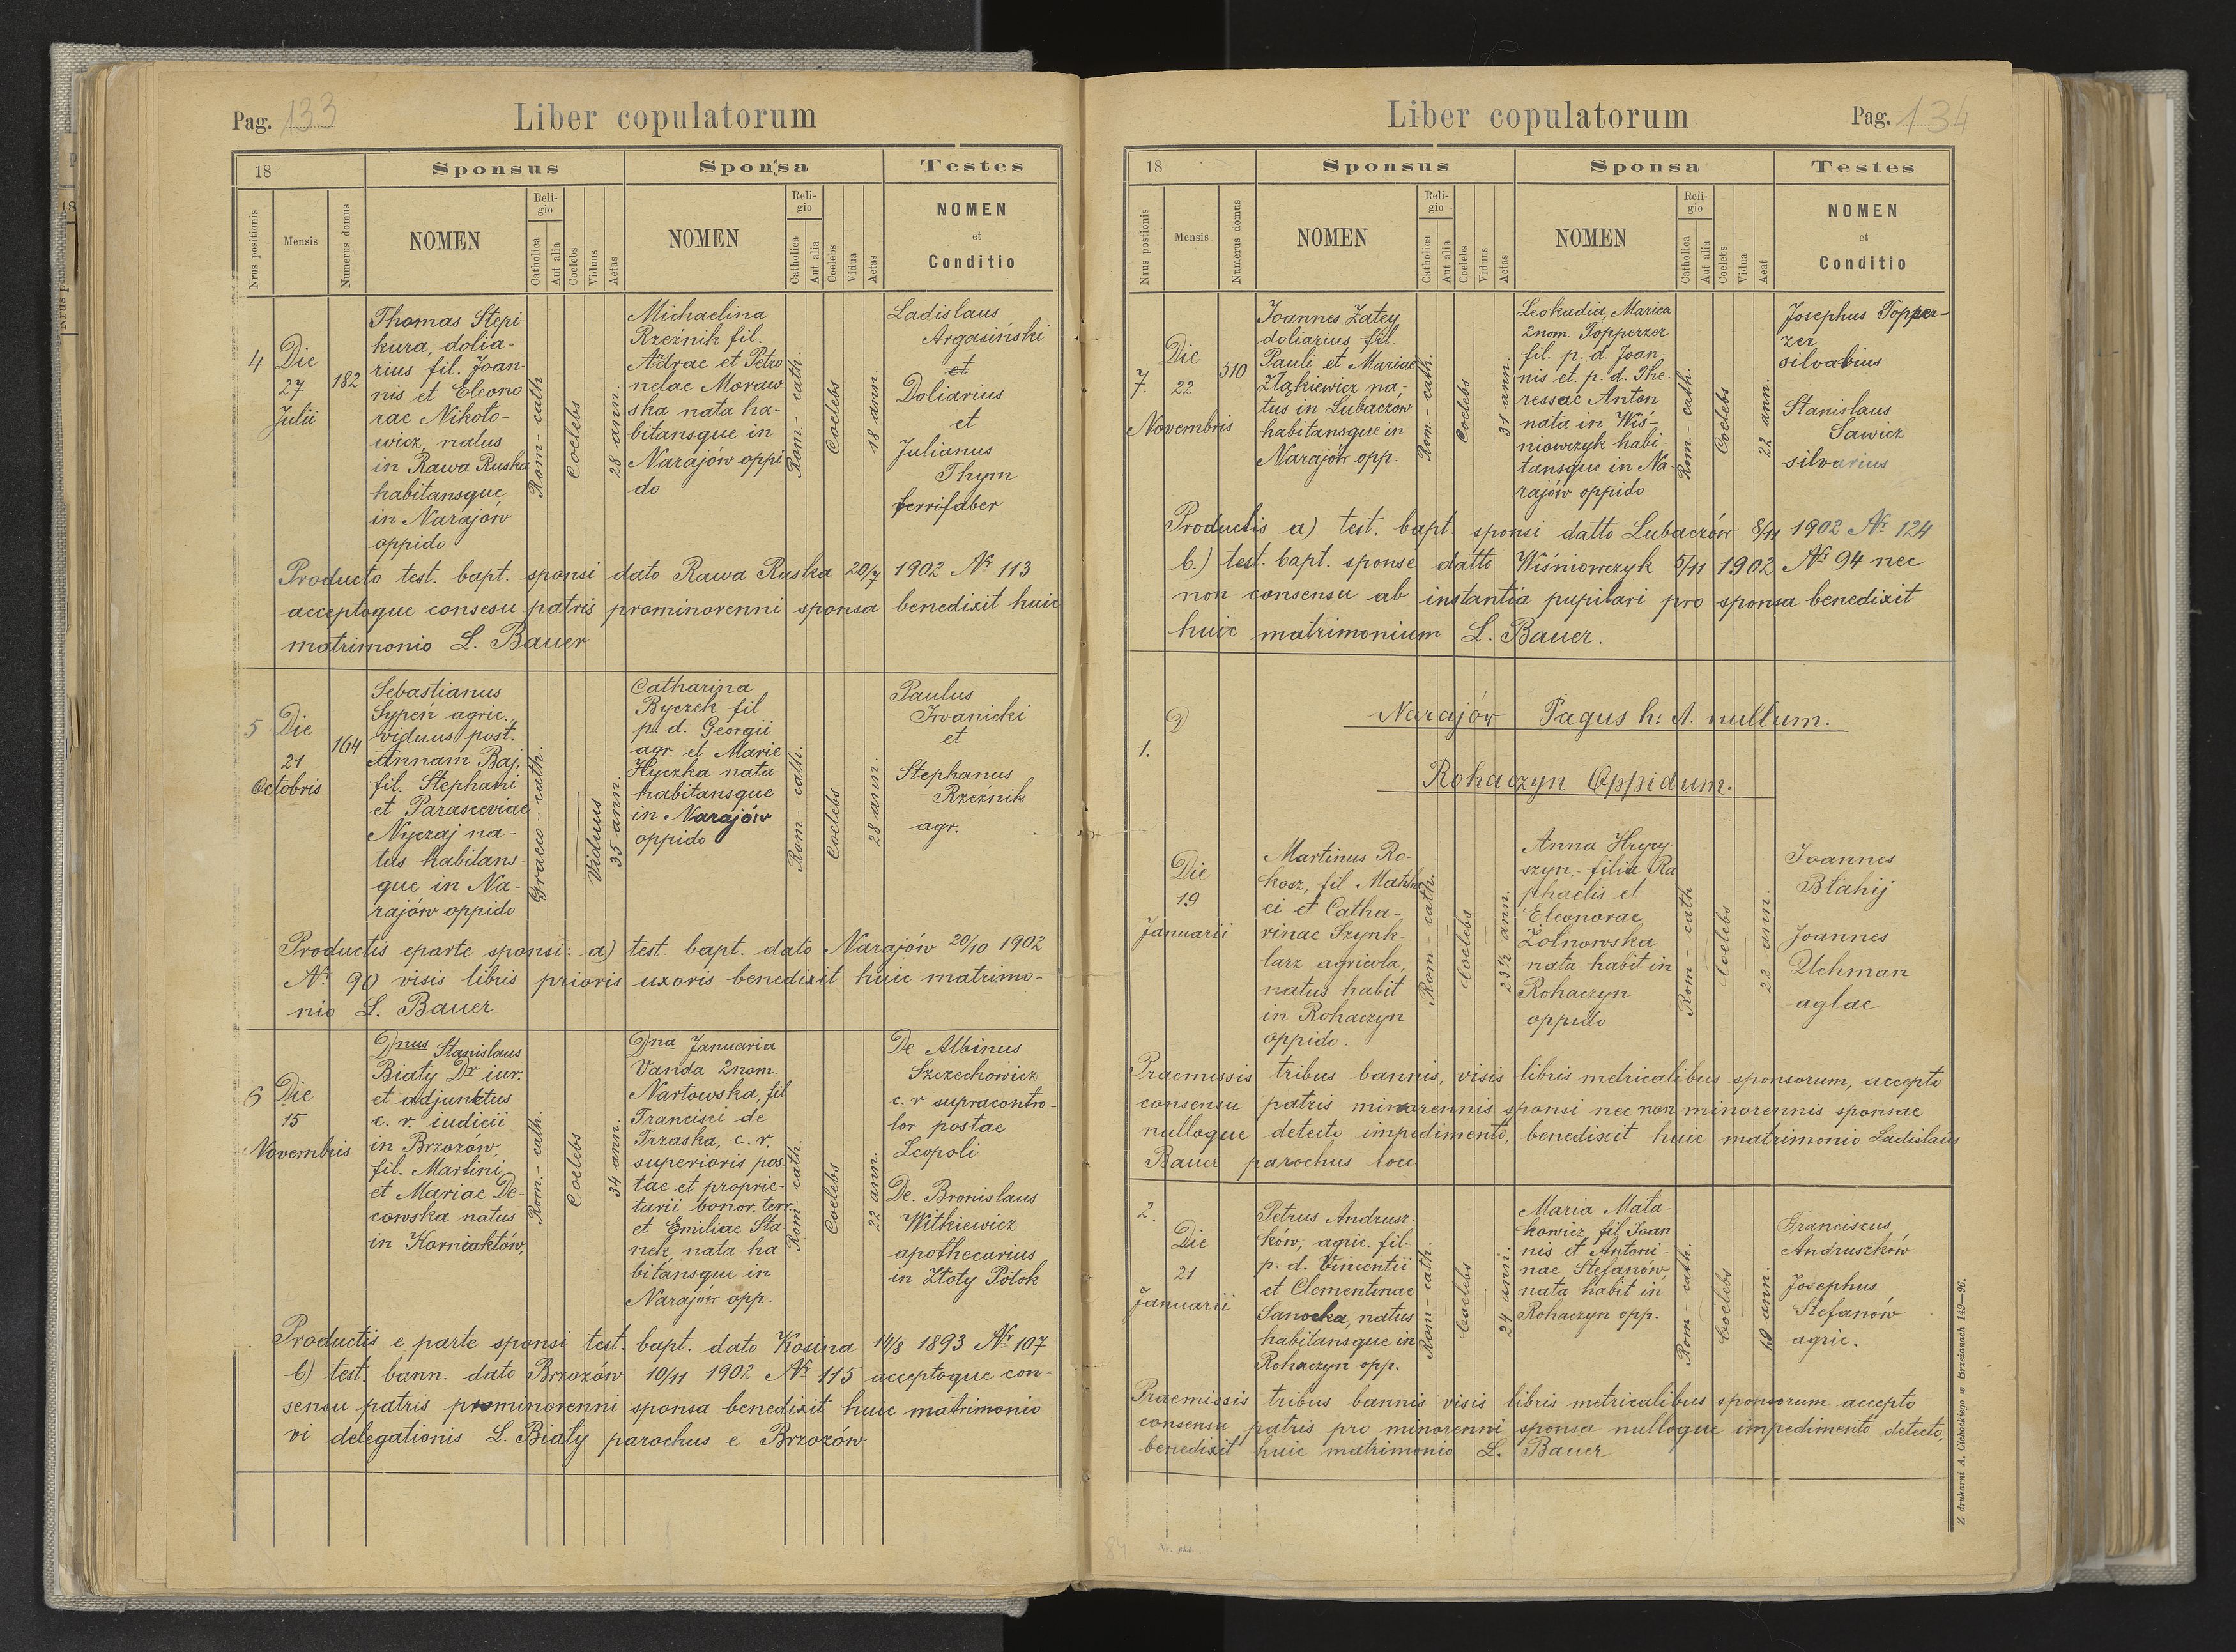 Pag. 133
Liber copulatorum
18
Sponsus
Sponsa
Testes
Nrus positionis
Mensis
Numerus domus
NOMEN
Religio
Catholica
Aut alia
Coelebs
Viduus
Aetas
NOMEN
Religio
Catholica
Aut alia
Coelebs
Vidua
Aetas
NOMEN
et
Conditio
4
Die
27
Julii
182
Thomas Stepi-
kura, dolia-
rius fil. Joan-
nis et Eleono
rae Nikoło-
wicz, natus
in Rawa Ruska
habitansque
in Narajów
oppido
Rom.- cath
Coelebs
28 ann.
Michaelina
Rzeźnik fil.
Andrae et Petro
nelae Moraw-
ska nata ha-
bitansque in
Narajów oppi
do
Rom.- cath.
Coelebs
18 ann.
Ladislaus
Argasiński
et
Doliarius
et
Julianus
Thym
ferrifaber
Producto test. bapt. sponsi dato Rawa Ruska 20/7 1902 Nr 113
acceptoque consesu patris prominorenni sponsa benedixit huic
matrimonio L. Bauer
5
Die
21
Octobris
164
Sebastianus
Sypeń agric.
viduus post.
Annam Baj.
fil. Stephani
et Parasceviae
Nyczaj na-
tus habitans-
que in Na-
rajów oppido
Graeco-cath.
Viduus
35 ann.
Catharina
Byczek fil
p. d. Georgii
agr. et Marie
Hyczka nata
habitansque
in Narajów
oppido
Rom- cath.
Coelebs
28 ann.
Paulus
Iwanicki
et
Stephanus
Rzeźnik
agr.
Productis eparte sponsi: a) test. bapt. dato Narajów 20/10 1902
Nr. 90 visis libris prioris uxoris benedixit huic matrimo-
nio L. Bauer
6
Die
15
Novembris
Dnus Stanislaus
Biały Dr iur.
et adjunktus
c. r. iudicii
in Brzozów,
fil. Martini
et Mariae De-
cowska natus
in Korniaktów,
Rom.- cath.
Coelebs
34 ann.
Dna Januaria
Vanda 2nom.
Nartowska, fil
Francisci de
Trzaska, c. r.
superioris pos
tae et proprie-
tarii bonor. terr.
et Emiliae Sta
nek nata ha-
bitansque in
Narajów opp.
Rom- cath.
Coelebs
22 ann.
De Albinus
Szczechowicz
c. r supracontro-
lor postae
Leopoli
De. Bronislaus
Witkiewicz
apothecarius
in Złoty Potok
Productis e parte sponsi test. bapt. dato Kosina 14/8 1893 Nr 107
b) test. bann. dato Brzozów 10/11 1902 Nr 115 acceptoque con-
sensu patris prominorenni sponsa benedixit huic matrimonio
vi delegationis L. Biały parochus e Brzozów
Liber copulatorum
Pag. 134
18
Sponsus
Sponsa
Testes
Nrus postionis
Mensis
Numerus domus
NOMEN
Religio
Catholica
Aut alia
Coelebs
Viduus
Aetas
NOMEN
Religio
Catholica
Aut alia
Coelebs
Vidua
Aeat
NOMEN
et
Conditio
7.
Die
22
Novembris
510
Joannes Zatey
doliarius fil.
Pauli et Mariae
Złąkiewicz na-
tus in Lubaczów
habitansque in
Narajów opp.
Rom.- cath.
Coelebs
31 ann.
Leokadia Marica
2nom. Topperzer
fil. p. d. Joan-
nis et. p. d. The-
ressae Anton
nata in Wiś-
niowczyk habi-
tansque in Na-
rajów oppido
Rom.- cath.
Coelebs
22 ann.
Josephus Topper-
zer
silvarius
Stanislaus
Sawicz
silvarius
Productis a) test. bapt. sponsi datto Lubaczów 8/11 1902 Nr 124
b.) test. bapt. sponse datto Wiśniowczyk 5/11 1902 Nr 94 nec
non consensu ab instantia pupilari pro sponsa benedixit
huic matrimonium L. Bauer.
Narajów Pagus h: A. nullum.
Rohaczyn Oppidum.
1.
Die
19
Januarii
Martinus Ro-
kosz, fil Mathe
ei et Catha-
rinae Szynk-
larz agricola,
natus habit
in Rohaczyn
oppido.
Rom - cath.
Coelebs
23½ ann.
Anna Hrycy-
szyn, filia Ra
phaelis et
Eleonorae
Żołnowska
nata habit in
Rohaczyn
oppido
Rom - cath
Coelebs
22 ann.
Joannes
Błahij
Joannes
Uchman
aglae
Praemissis tribus bannis, visis libris metricalibus sponsorum, accepto
consensu patris minorennis sponsi nec non minorennis sponsae
nulloque detecto impedimento, benedixit huic matrimonio Ladislaus
Bauer parochus loci
2.
Die
21
Januarii
Petrus Andrusz-
ków, agric. fil.
p. d. Vincentii
et Clementinae
Sanocka, natus
habitansque in
Rohaczyn opp.
Rom- cath.
Coelebs
24 ann.
Maria Mata-
kowicz fil. Joan
nis et Antoni-
nae Stefanów,
nata habit in
Rohaczyn opp.
Rom - cath.
Coelebs
19 ann.
Franciscus
Andruszków
Josephus
Stefanów
agric.
Praemissis tribus bannis visis libris metricalibus sponsorum accepto
consensu patris pro minorenni sponsa nulloque impedimento detecto,
benedixit huic matrimonio L. Bauer
Z drukarni A. Cichockiego w Brzeżanach 149—96.